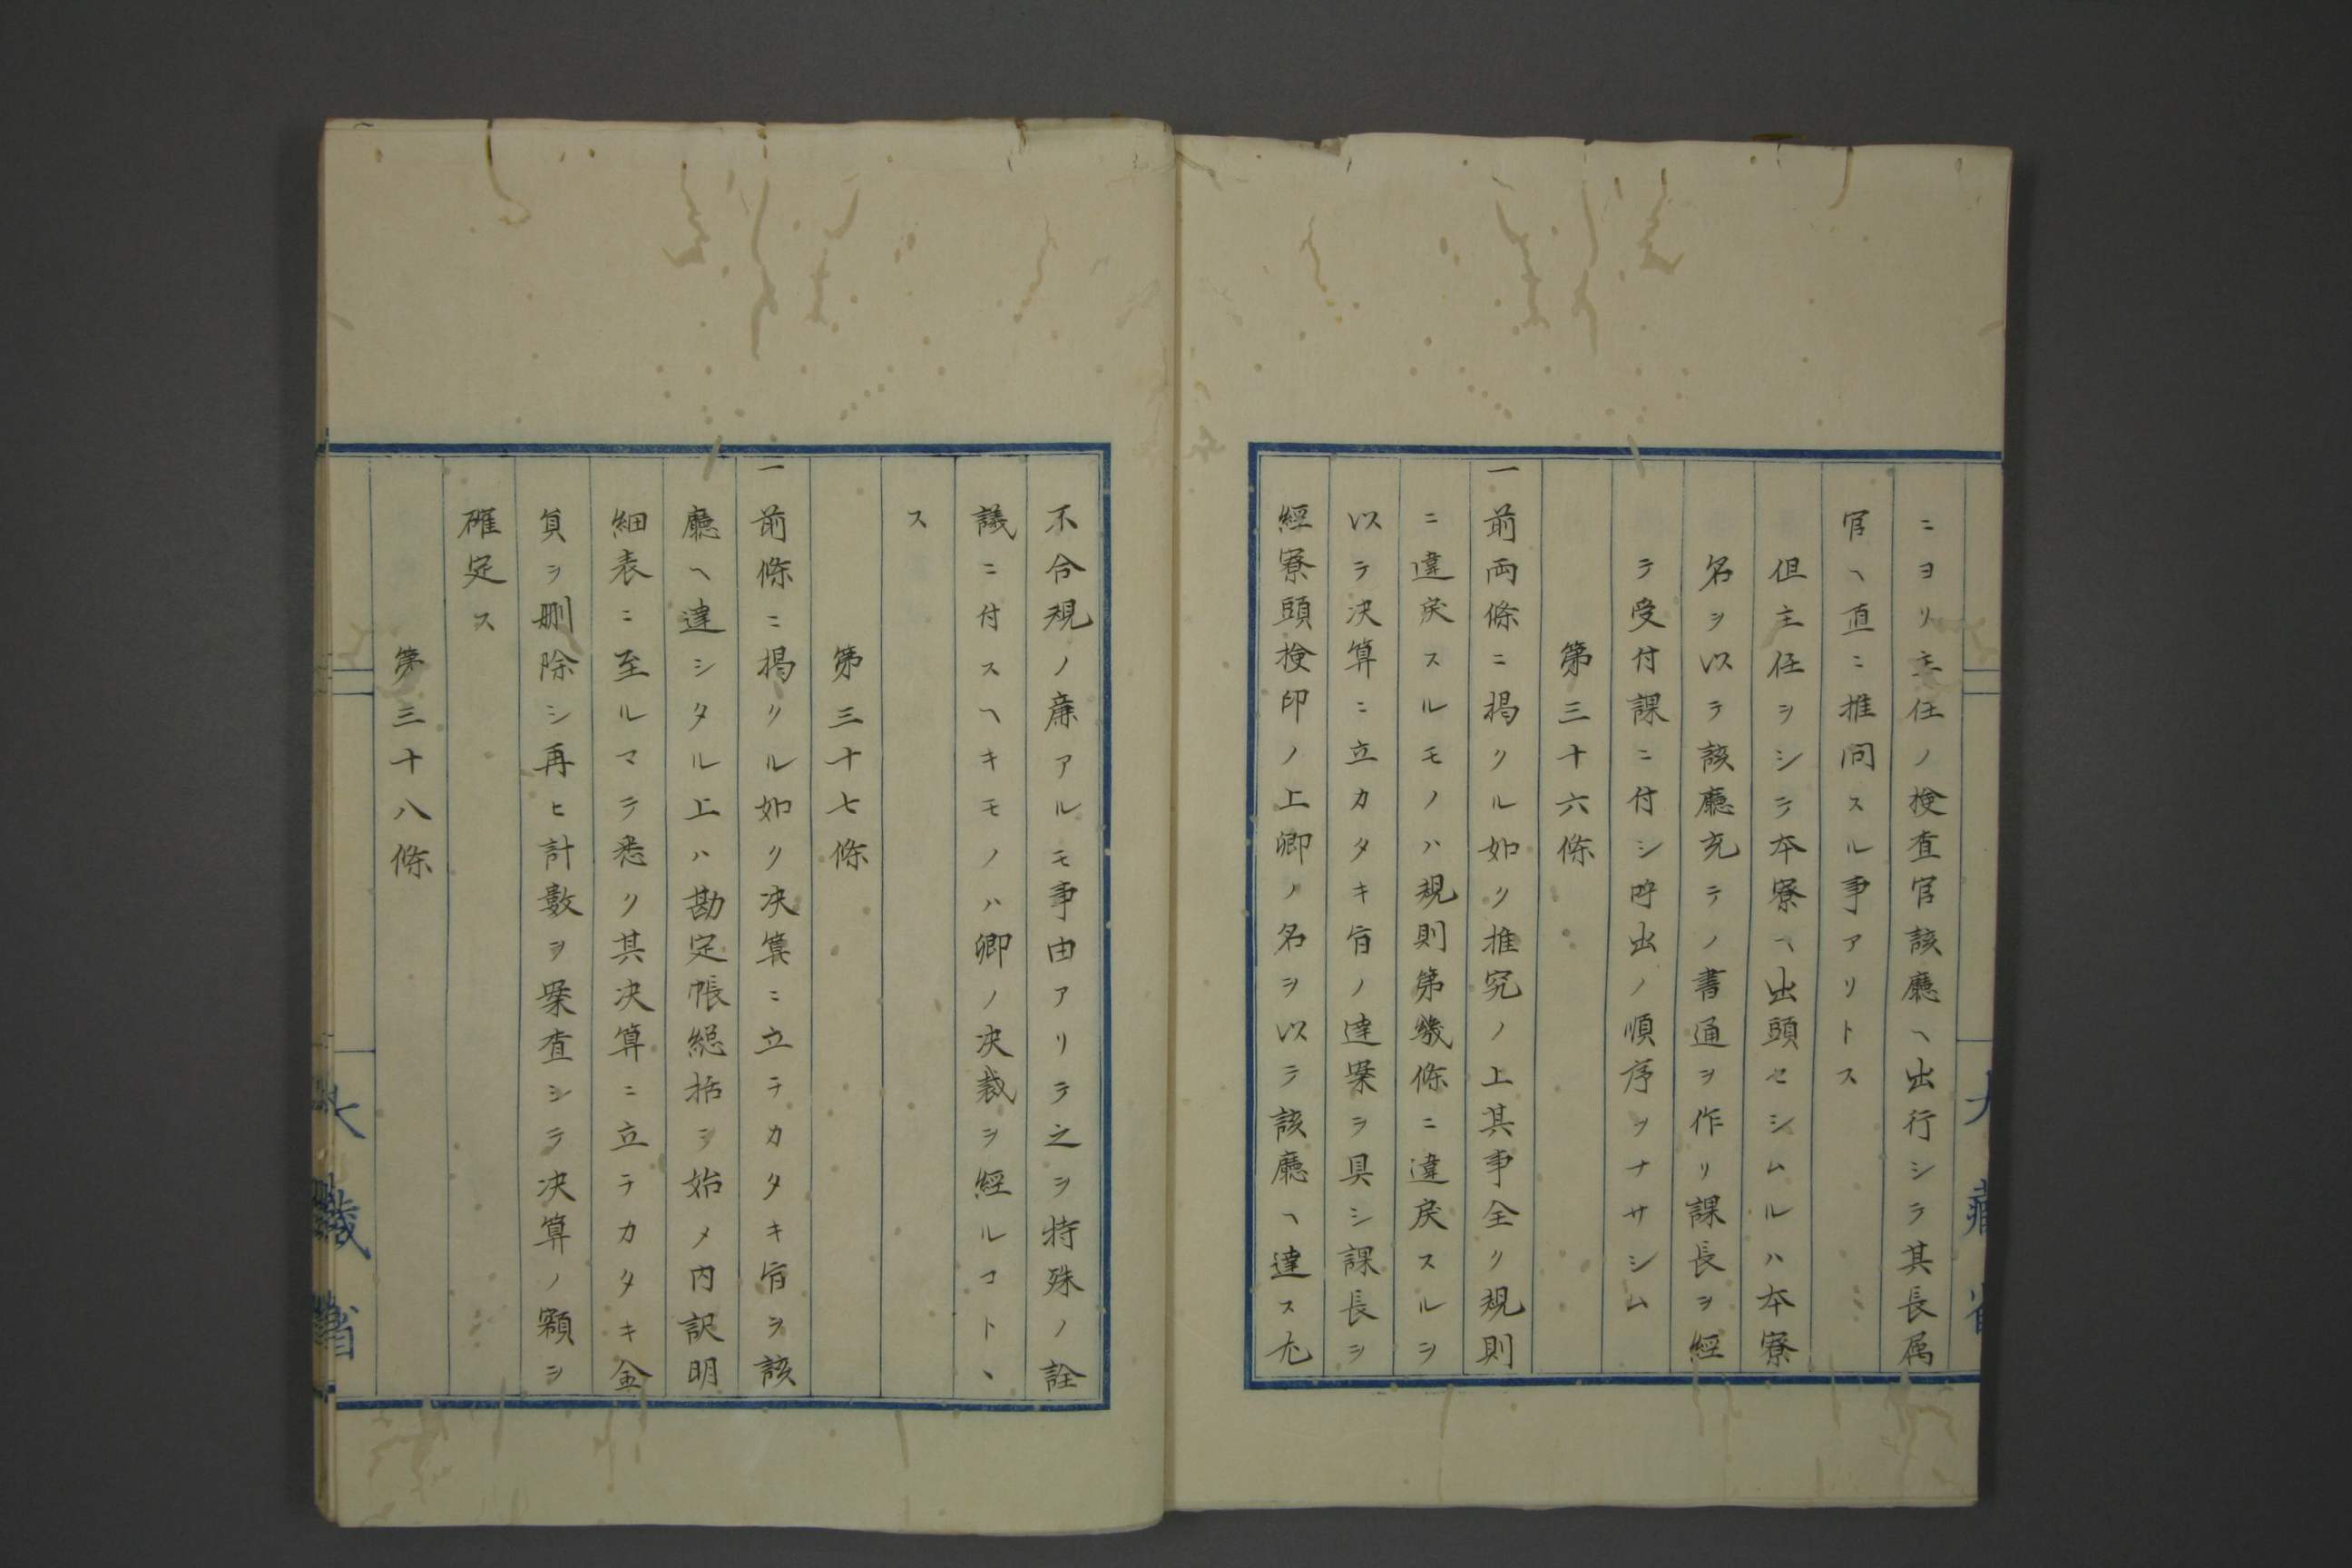 ニヨリ主任ノ検査官該廳ヘ出行シテ其長属
官ヘ直ニ推問スル事アリトス
但主任ヲシテ本寮ヘ出頭セシムルハ本寮
名ヲ以テ該廳充テノ書通ヲ作リ課長ヲ經
テ受付課ニ付シ呼出ノ順序ヲナサシム
第三十六條
一前両條ニ掲クル如ク推究ノ上其事全ク規則
ニ違戻スルモノハ規則第幾條ニ違戻スルヲ
以テ决算ニ立カタキ旨ノ達案ヲ具シ課長ヲ
經寮頭検印ノ上卿ノ名ヲ以テ該廳ヘ達ス尤
不合規ノ廉アルモ事由アリテ之ヲ特殊ノ詮
議ニ付スヘキモノハ卿ノ决裁ヲ経ルコトヽ
ス
第三十七條
一前條ニ掲クル如ク决算ニ立テカタキ旨ヲ該
廳ヘ達シタル上ハ勘定帳総括ヲ始メ内訳明
細表ニ至ルマテ悉ク其决算ニ立テカタキ金
員ヲ刪除シ再ヒ計數ヲ案査シテ决算ノ額ヲ
確定ス
第三十八條
大藏省
大藏省